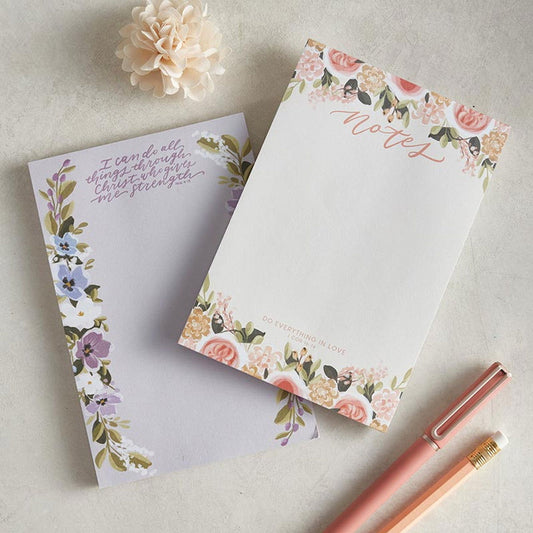 I can do all
things through
Christ who gives
me strength
Notes
DO EVERYTHING IN LOVE